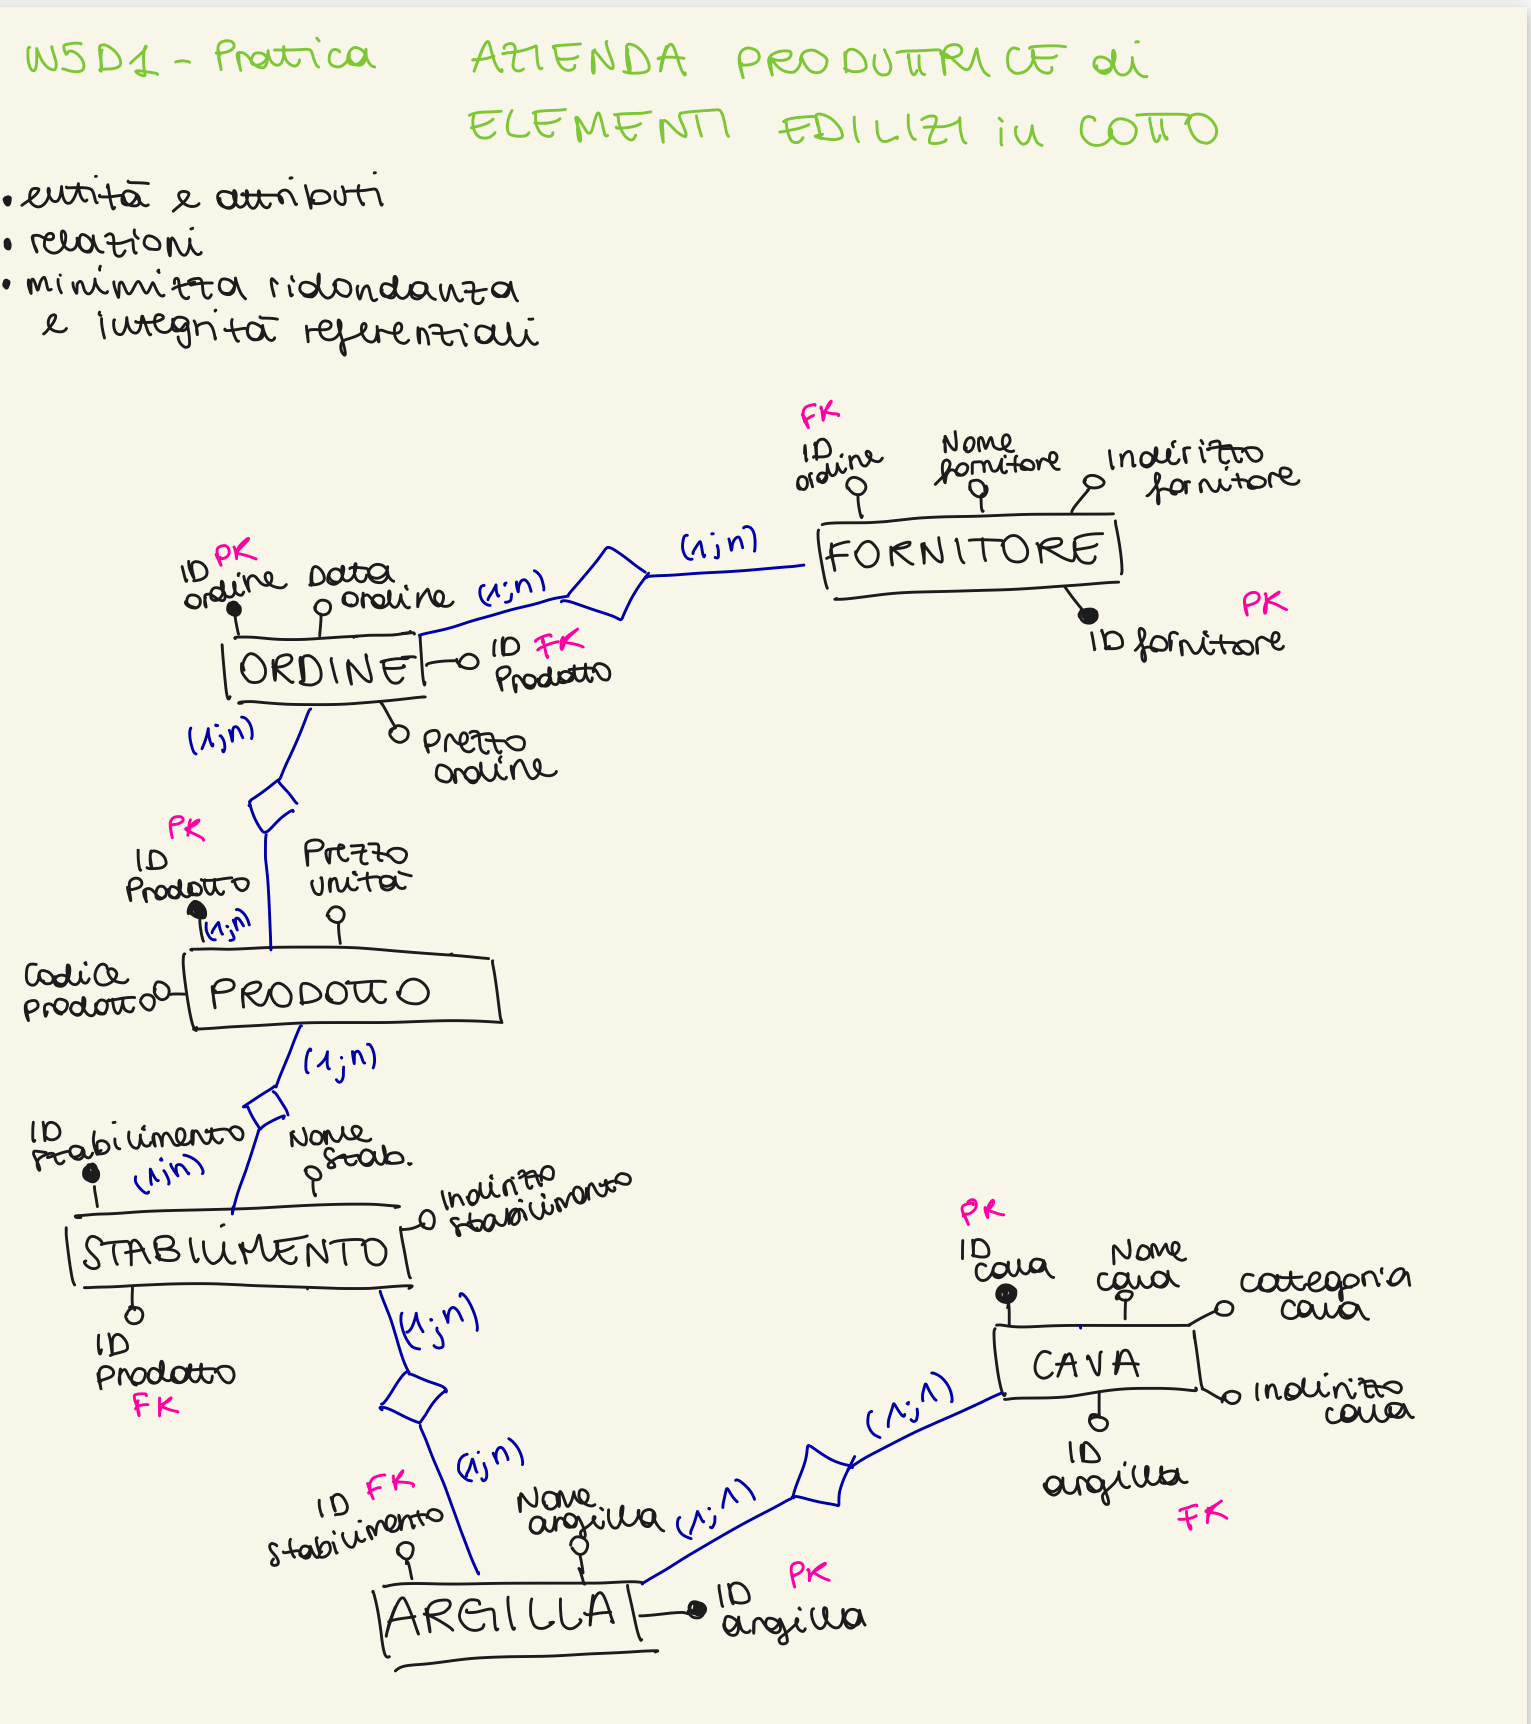 W5D1 - Pratica
AZIENDA PRODUTTRICE di
ELEMENTI EDILIZI in COTTO
• entità e attributi
• relazioni
• minimizza ridondanza
e integrità referenziali
FK
ID
ordine
Nome
fornitore
Indirizzo
fornitore
FORNITORE
PK
ID fornitore
(1;n)
(1;n)
PK
ID
ordine
Data
ordine
ORDINE
ID FK
Prodotto
Prezzo
ordine
(1;n)
PK
ID
Prodotto
Prezzo
unità
(1;n)
Codice
prodotto
PRODOTTO
(1;n)
ID
stabilimento
(1;n)
Nome
stab.
Indirizzo
stabilimento
STABILIMENTO
ID
Prodotto
FK
(1;n)
(1;n)
PK
ID
cava
Nome
cava
categoria
cava
CAVA
Indirizzo
cava
ID
argilla
FK
(1;1)
(1;1)
ID FK
stabilimento
Nome
argilla
ARGILLA
PK
ID
argilla